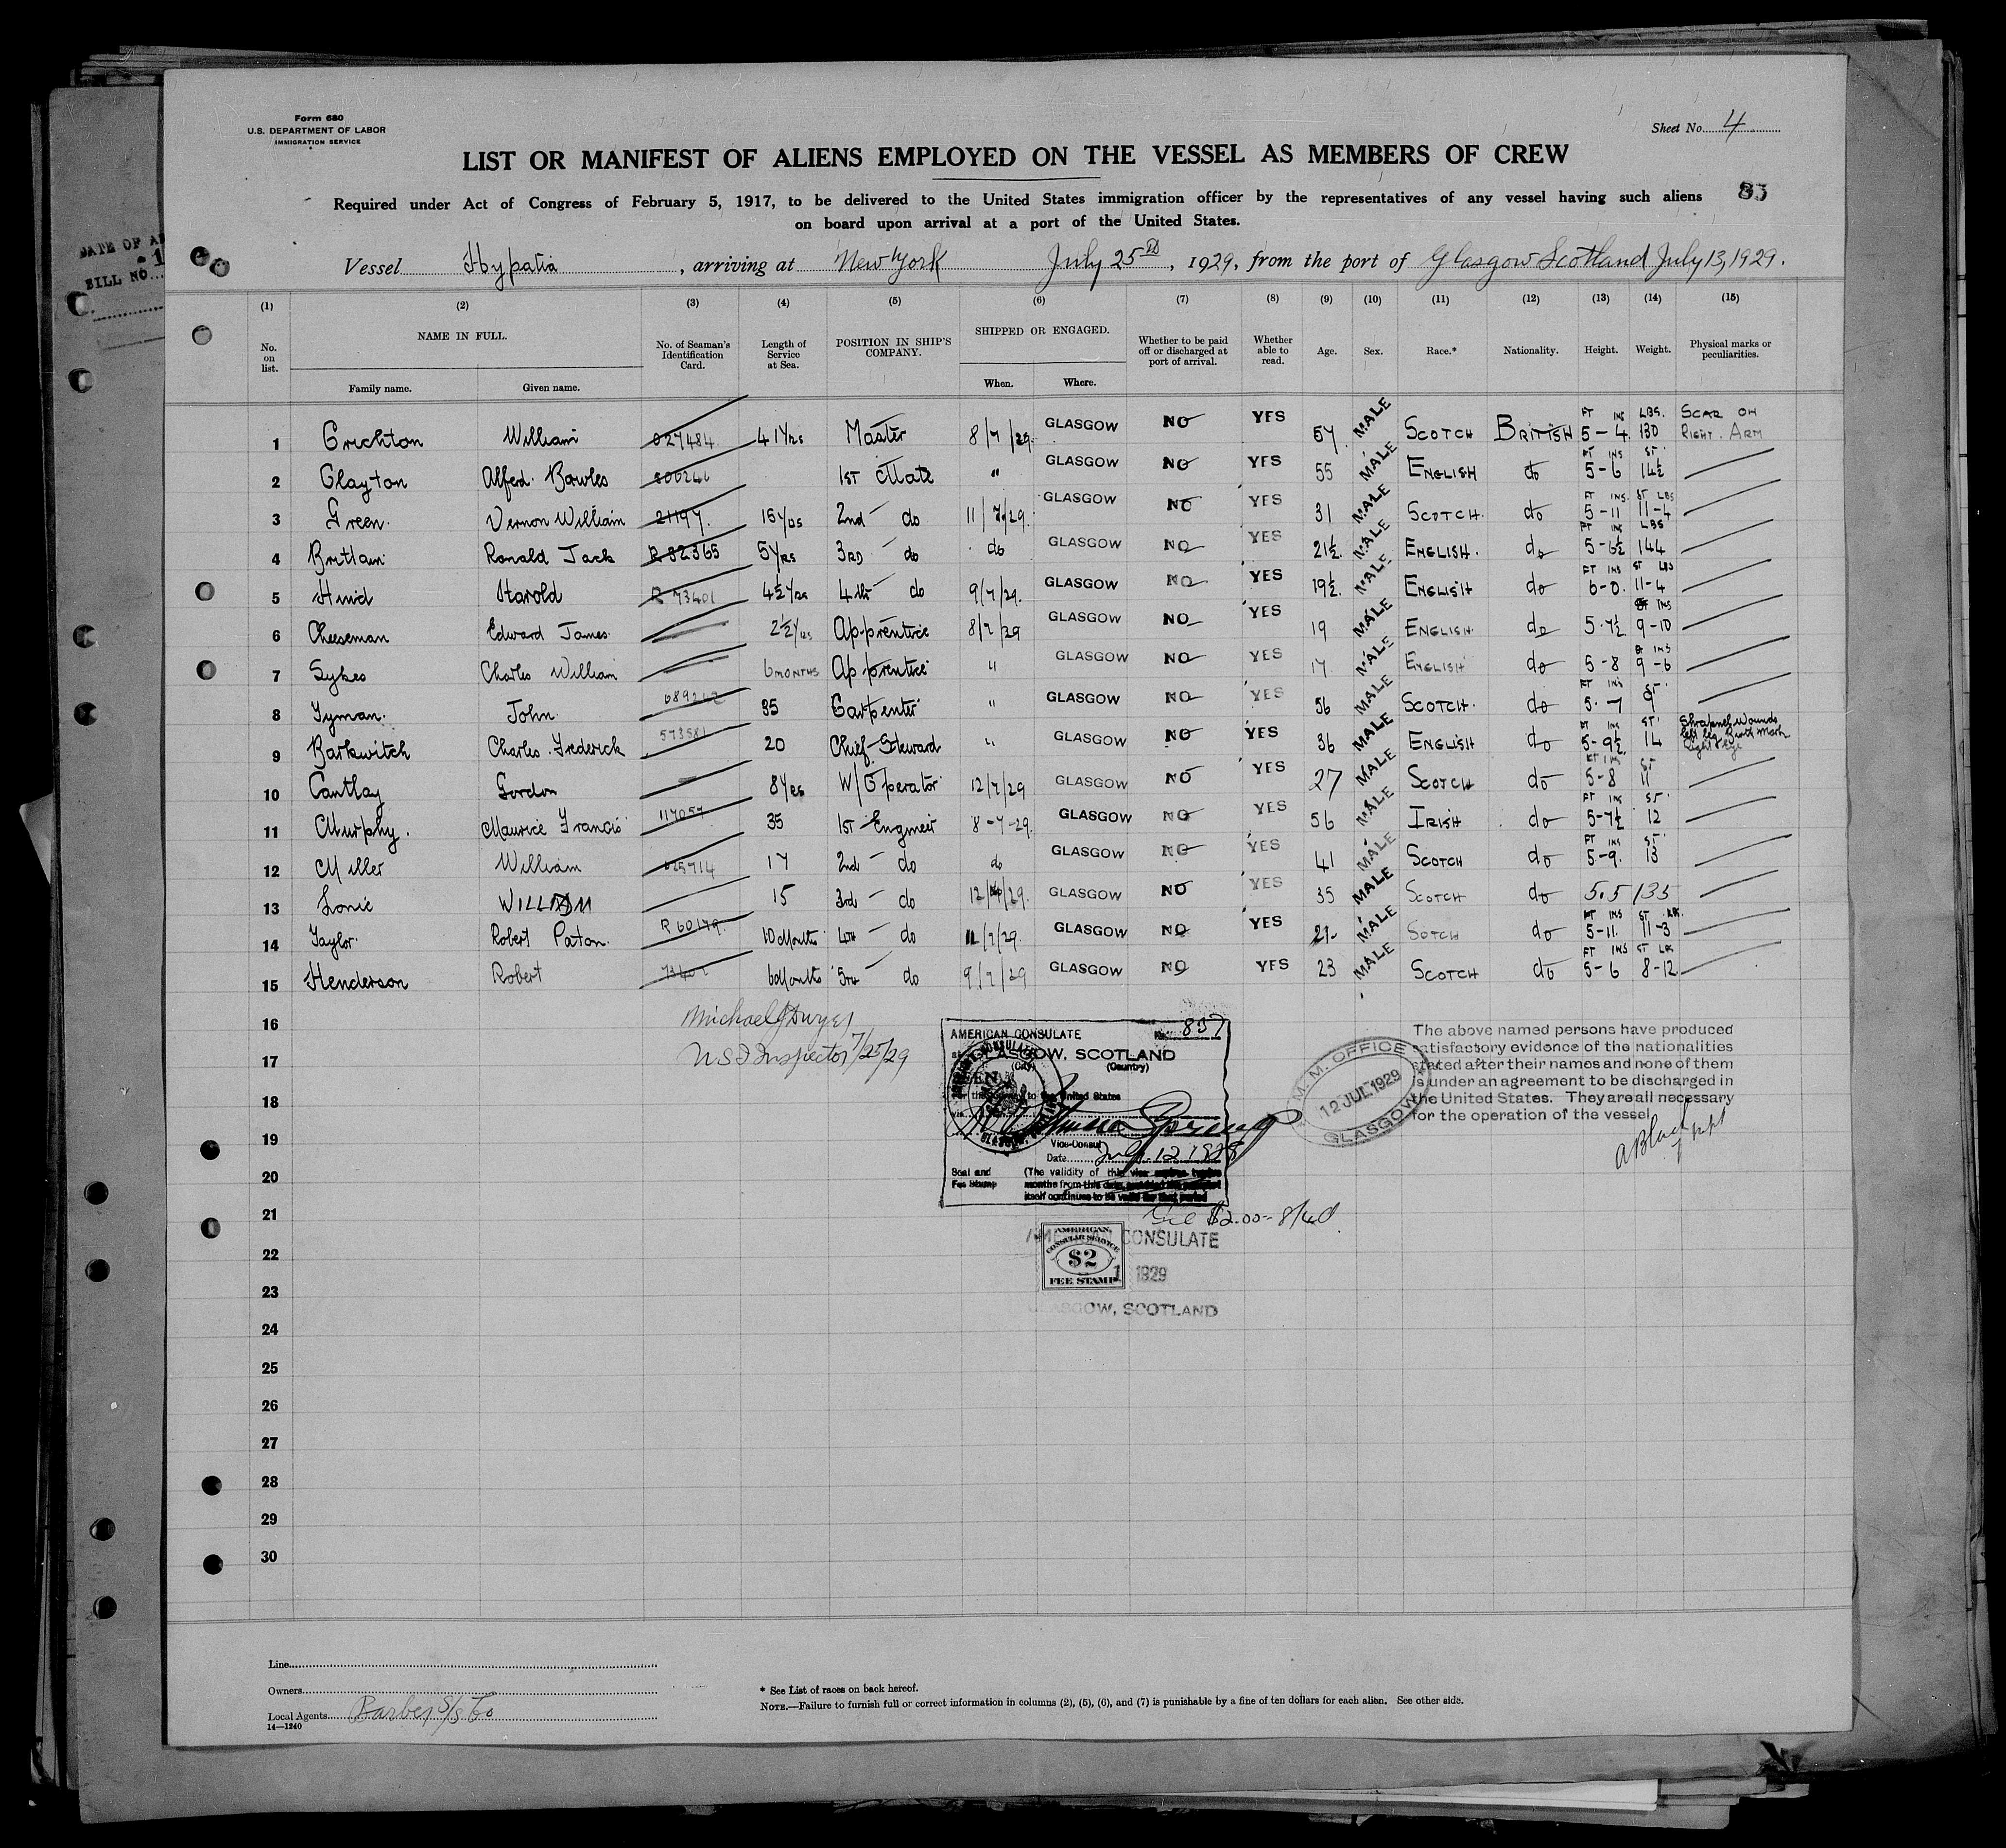 Form 680
U.S. DEPARTMENT OF LABOR
IMMIGRATION SERVICE
Sheet No. 4
LIST OR MANIFEST OF ALIENS EMPLOYED ON THE VESSEL AS MEMBERS OF CREW
Required under Act of Congress of February 5, 1917, to be delivered to the United States immigration officer by the representatives of any vessel having such aliens
on board upon arrival at a port of the United States.
BILL NO.
Vessel Hypatia, arriving at New York July 25th, 1929, from the port of Glasgow Scotland July 13, 1929.
(1) (2) (3) (4) (5) (6) (7) (8) (9) (10) (11) (12) (13) (14) (15)
No. on list. NAME IN FULL. No. of Seaman's Identification Card. Length of Service at Sea. POSITION IN SHIP'S COMPANY. SHIPPED OR ENGAGED. Whether to be paid off or discharged at port of arrival. Whether able to read. Age. Sex. Race.* Nationality. Height. Weight. Physical marks or peculiarities.
Family name. Given name. When. Where.
1 Crichton William 027484 41 Yrs Master 8/7/29 GLASGOW NO YES 57 MALE SCOTCH BRITISH FT INS 5-4 LBS. 130 SCAR ON RIGHT ARM
2 Clayton Alferd Bowles 1ST Mate " GLASGOW NO YES 55 MALE ENGLISH do FT INS 5-6 ST 14½
3 Green Vernon William 21197 15 yrs 2nd do 11/7/29 GLASGOW NO YES 31 MALE SCOTCH do FT INS 5-11 ST LBS 11-4
4 Brittain Ronald Jack R 82365 5 Yrs 3RD do do GLASGOW NO YES 21½ MALE ENGLISH do FT INS 5-6½ LBS 144
5 Hind Harold R 73401 4½ Yrs 4th do 9/7/29 GLASGOW NO YES 19½ MALE ENGLISH do FT INS 6-0 ST LBS 11-4
6 Cheeseman Edward James 2½ Yrs Apprentice 8/7/29 GLASGOW NO YES 19 MALE ENGLISH do 5-7½ INS 9-10
7 Sykes Charles William 6 MONTHS Apprentice " GLASGOW NO YES 17 MALE ENGLISH do 5-8 INS 9-6
8 Tyman John 35 Carpenter " GLASGOW NO YES 56 MALE SCOTCH do FT INS 5-7 ST 9
9 Barkwitch Charles Frederick 573581 20 Chief Steward " GLASGOW NO YES 36 MALE ENGLISH do FT INS 5-9½ ST 14 Shrapnel Wounds left leg Birth Mark Right Eye
10 Cantlay Gordon 8 Yrs W/Operator 12/7/29 GLASGOW NO YES 27 MALE SCOTCH do FT INS 5-8 ST 11
11 Murphy Maurice Francis 117057 35 1ST Engineer 8-7-29 GLASGOW NO YES 56 MALE IRISH do FT INS 5-7½ ST 12
12 Miller William 17 2nd do do GLASGOW NO YES 41 MALE SCOTCH do FT INS 5-9 ST 13
13 Lonie WILLIAM 15 3rd do 12/7/29 GLASGOW NO YES 35 MALE SCOTCH do 5.5 135
14 Taylor Robert Paton R 60179 10 Months 4TH do 11/7/29 GLASGOW NO YES 21 MALE SOTCH do FT INS 5-11 ST LBS 11-3
15 Henderson Robert 6 Months 5TH do 9/7/29 GLASGOW NO YES 23 MALE SCOTCH do FT INS 5-6 ST LBS 8-12
16
17
18
19
20
21
22
23
24
25
26
27
28
29
30
Michael J Dwyer
U S I Inspector 7/25/29
AMERICAN CONSULATE No. 857
at GLASGOW, SCOTLAND
(City) (Country)
SEEN
For the journey to the United States
Vice-Consul
Date July 12 1929
Seal and Fee Stamp (The validity of this visa expires twelve
months from this date, provided the passport
itself continues to be valid for that period
Fee $2.00 = 8/4d
AMERICAN CONSULATE
AMERICAN CONSULAR SERVICE $2 FEE STAMP
1929
GLASGOW, SCOTLAND
M. M. OFFICE
12 JUL 1929
GLASGOW
The above named persons have produced
satisfactory evidence of the nationalities
stated after their names and none of them
is under an agreement to be discharged in
the United States. They are all necessary
for the operation of the vessel
A Black
Line
Owners
Local Agents Barber S/S Co
14—1240
* See List of races on back hereof.
NOTE.—Failure to furnish full or correct information in columns (2), (5), (6), and (7) is punishable by a fine of ten dollars for each alien. See other side.